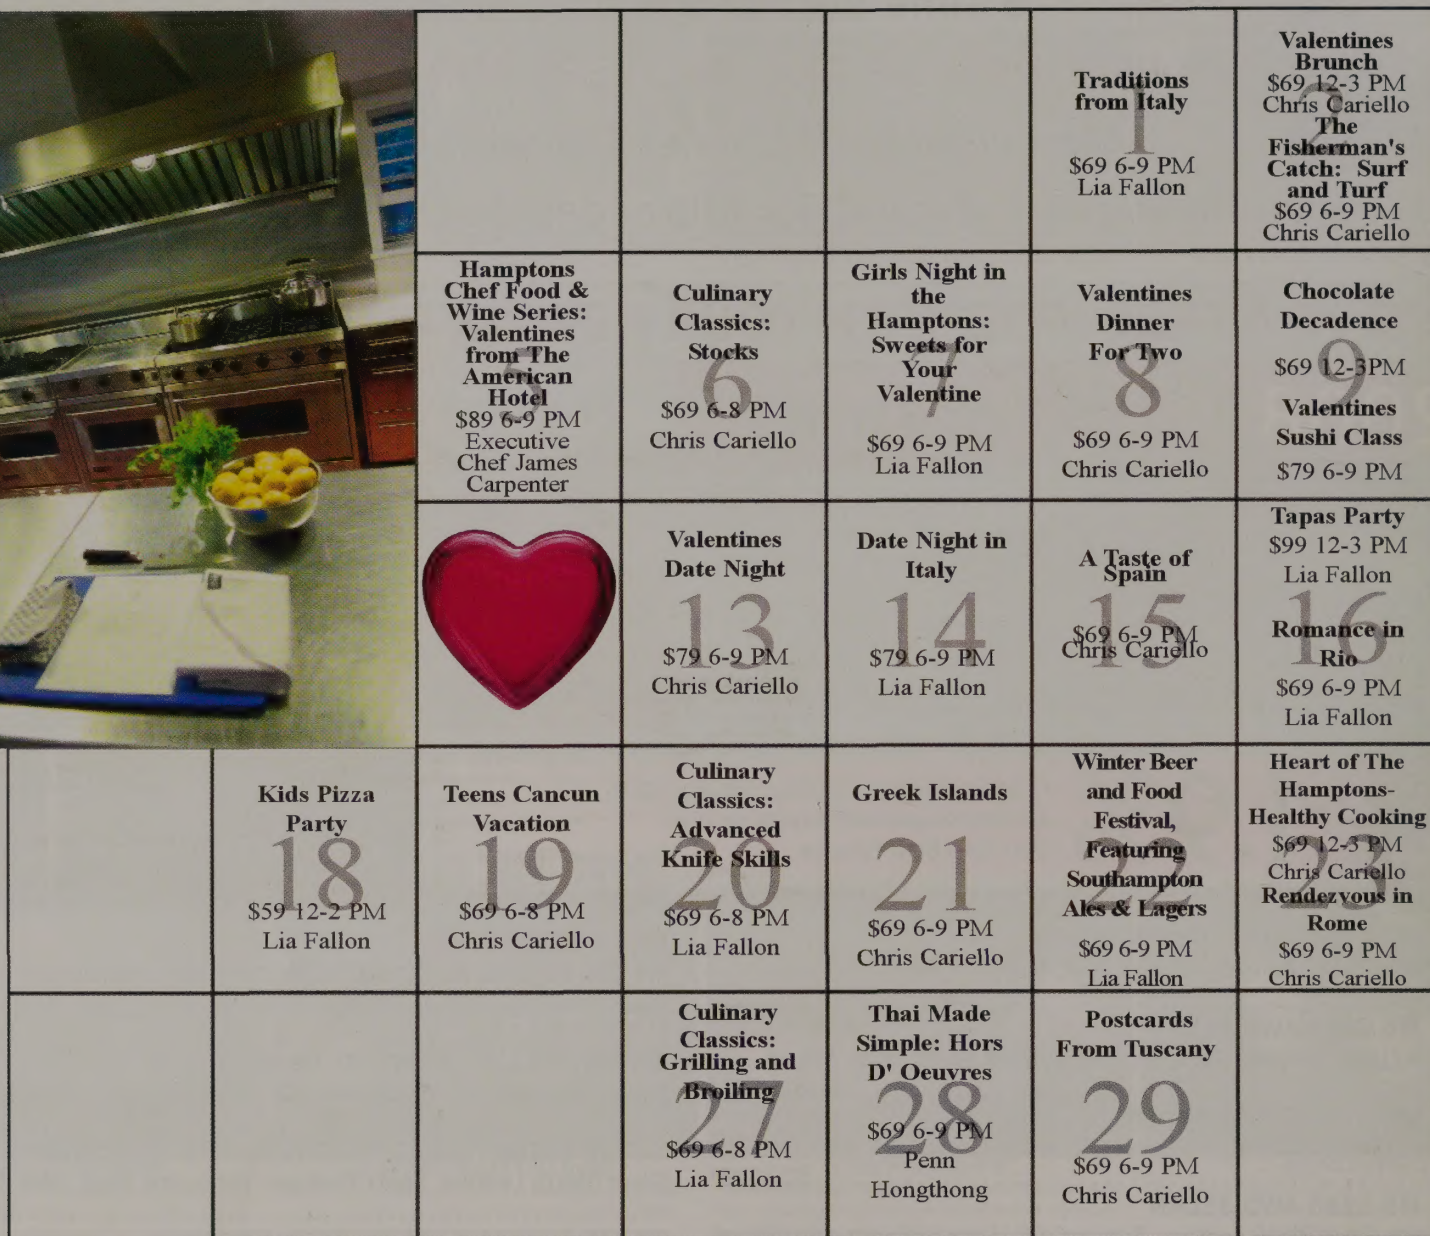 Traditions
from Italy
1
$69 6-9 PM
Lia Fallon
Valentines
Brunch
$69 12-3 PM
Chris Cariello
2
The
Fisherman's
Catch: Surf
and Turf
$69 6-9 PM
Chris Cariello
Hamptons
Chef Food &
Wine Series:
Valentines
from The
American
Hotel
5
$89 6-9 PM
Executive
Chef James
Carpenter
Culinary
Classics:
Stocks
6
$69 6-8 PM
Chris Cariello
Girls Night in
the
Hamptons:
Sweets for
Your
Valentine
7
$69 6-9 PM
Lia Fallon
Valentines
Dinner
For Two
8
$69 6-9 PM
Chris Cariello
Chocolate
Decadence
9
$69 12-3PM
Valentines
Sushi Class
$79 6-9 PM
Valentines
Date Night
13
$79 6-9 PM
Chris Cariello
Date Night in
Italy
14
$79 6-9 PM
Lia Fallon
A Taste of
Spain
15
$69 6-9 PM
Chris Cariello
Tapas Party
$99 12-3 PM
Lia Fallon
16
Romance in
Rio
$69 6-9 PM
Lia Fallon
Kids Pizza
Party
18
$59 12-2 PM
Lia Fallon
Teens Cancun
Vacation
19
$69 6-8 PM
Chris Cariello
Culinary
Classics:
Advanced
Knife Skills
20
$69 6-8 PM
Lia Fallon
Greek Islands
21
$69 6-9 PM
Chris Cariello
Winter Beer
and Food
Festival,
Featuring
22
Southampton
Ales & Lagers
$69 6-9 PM
Lia Fallon
Heart of The
Hamptons-
Healthy Cooking
$69 12-3 PM
23
Chris Cariello
Rendezvous in
Rome
$69 6-9 PM
Chris Cariello
Culinary
Classics:
Grilling and
Broiling
27
$69 6-8 PM
Lia Fallon
Thai Made
Simple: Hors
D' Oeuvres
28
$69 6-9 PM
Penn
Hongthong
Postcards
From Tuscany
29
$69 6-9 PM
Chris Cariello